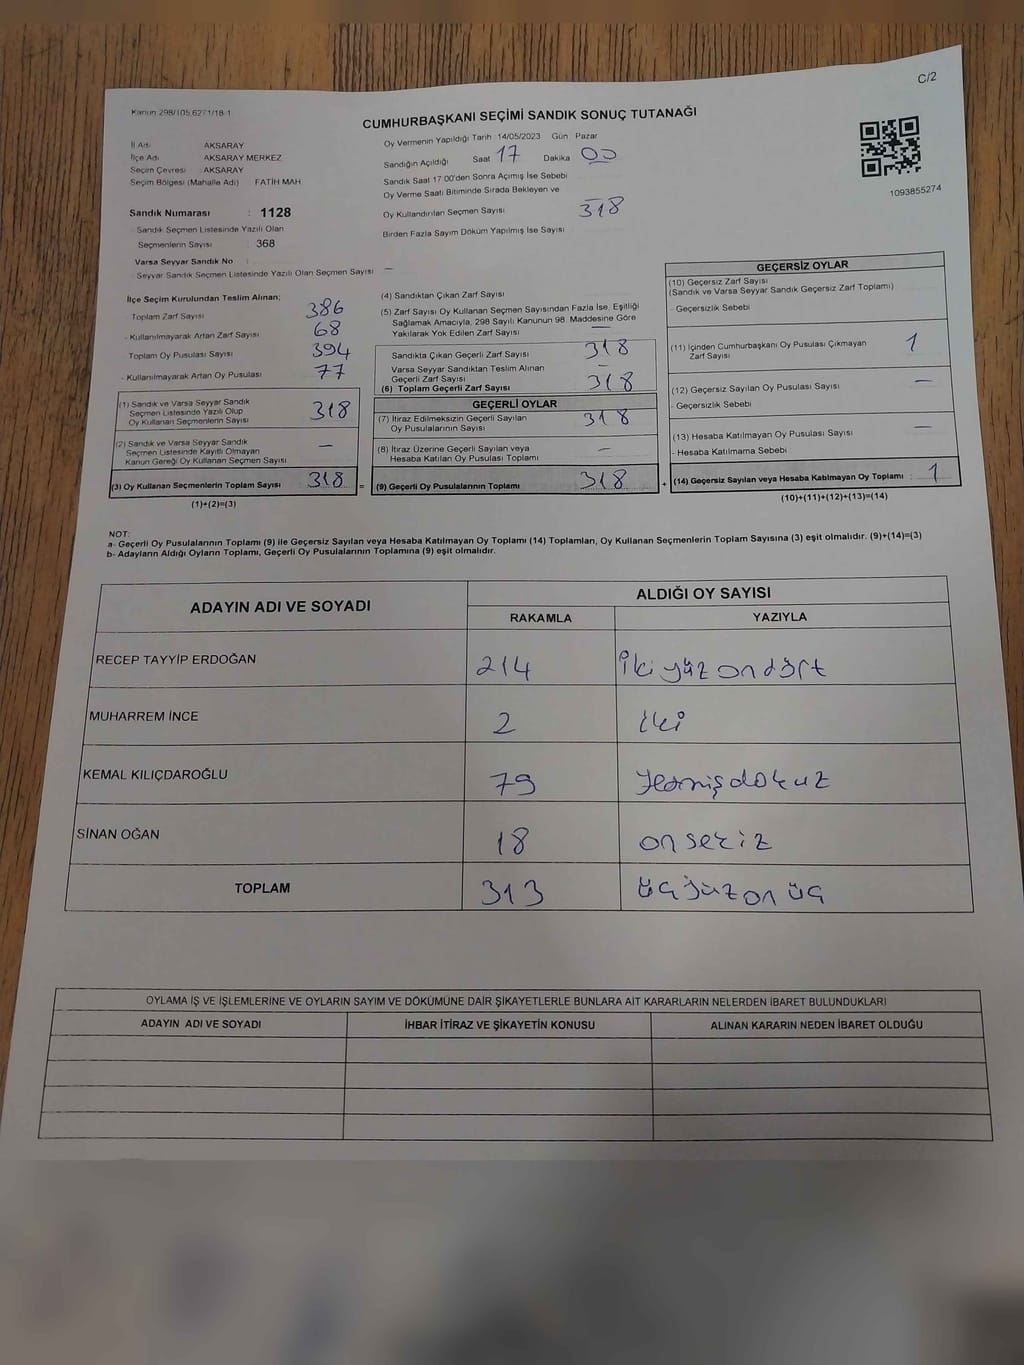 C/2
Kanun 298/105,6271/18-1
CUMHURBAŞKANI SEÇİMİ SANDIK SONUÇ TUTANAĞI
İl Adı : AKSARAY
İlçe Adı : AKSARAY MERKEZ
Seçim Çevresi : AKSARAY
Seçim Bölgesi (Mahalle Adı) : FATİH MAH
Sandık Numarası : 1128
Sandık Seçmen Listesinde Yazılı Olan
Seçmenlerin Sayısı : 368
Varsa Seyyar Sandık No :
Seyyar Sandık Seçmen Listesinde Yazılı Olan Seçmen Sayısı : —
Oy Vermenin Yapıldığı Tarih 14/05/2023 Gün Pazar
Sandığın Açıldığı Saat 17 Dakika 00
Sandık Saat 17 00'den Sonra Açımış İse Sebebi
Oy Verme Saati Bitiminde Sırada Bekleyen ve
Oy Kullandırılan Seçmen Sayısı 318
Birden Fazla Sayım Döküm Yapılmış İse Sayısı
1093855274
İlçe Seçim Kurulundan Teslim Alınan;
Toplam Zarf Sayısı 386
- Kullanılmayarak Artan Zarf Sayısı 68
Toplam Oy Pusulası Sayısı 394
- Kullanılmayarak Artan Oy Pusulası 77
(1) Sandık ve Varsa Seyyar Sandık
Seçmen Listesinde Yazılı Olup
Oy Kullanan Seçmenlerin Sayısı 318
(2) Sandık ve Varsa Seyyar Sandık
Seçmen Listesinde Kayıtlı Olmayan
Kanun Gereği Oy Kullanan Seçmen Sayısı —
(3) Oy Kullanan Seçmenlerin Toplam Sayısı 318 =
(1)+(2)=(3)
(4) Sandıktan Çıkan Zarf Sayısı
(5) Zarf Sayısı Oy Kullanan Seçmen Sayısından Fazla İse, Eşitliği
Sağlamak Amacıyla, 298 Sayılı Kanunun 98. Maddesine Göre
Yakılarak Yok Edilen Zarf Sayısı —
Sandıkta Çıkan Geçerli Zarf Sayısı 318
Varsa Seyyar Sandıktan Teslim Alınan
Geçerli Zarf Sayısı —
(6) Toplam Geçerli Zarf Sayısı 318
GEÇERLİ OYLAR
(7) İtiraz Edilmeksizin Geçerli Sayılan
Oy Pusulalarının Sayısı 318
(8) İtiraz Üzerine Geçerli Sayılan veya
Hesaba Katılan Oy Pusulası Toplamı —
(9) Geçerli Oy Pusulalarının Toplamı 318 +
GEÇERSİZ OYLAR
(10) Geçersiz Zarf Sayısı
(Sandık ve Varsa Seyyar Sandık Geçersiz Zarf Toplamı)
- Geçersizlik Sebebi
(11) İçinden Cumhurbaşkanı Oy Pusulası Çıkmayan
Zarf Sayısı 1
(12) Geçersiz Sayılan Oy Pusulası Sayısı —
- Geçersizlik Sebebi
(13) Hesaba Katılmayan Oy Pusulası Sayısı —
- Hesaba Katılmama Sebebi
(14) Geçersiz Sayılan veya Hesaba Katılmayan Oy Toplamı : 1
(10)+(11)+(12)+(13)=(14)
NOT:
a- Geçerli Oy Pusulalarının Toplamı (9) ile Geçersiz Sayılan veya Hesaba Katılmayan Oy Toplamı (14) Toplamları, Oy Kullanan Seçmenlerin Toplam Sayısına (3) eşit olmalıdır. (9)+(14)=(3)
b- Adayların Aldığı Oyların Toplamı, Geçerli Oy Pusulalarının Toplamına (9) eşit olmalıdır.
ADAYIN ADI VE SOYADI
ALDIĞI OY SAYISI
RAKAMLA YAZIYLA
RECEP TAYYİP ERDOĞAN 214 iki yüz on dört
MUHARREM İNCE 2 iki
KEMAL KILIÇDAROĞLU 79 yetmiş dokuz
SİNAN OĞAN 18 on sekiz
TOPLAM 313 üç yüz on üç
OYLAMA İŞ VE İŞLEMLERİNE VE OYLARIN SAYIM VE DÖKÜMÜNE DAİR ŞİKAYETLERLE BUNLARA AİT KARARLARIN NELERDEN İBARET BULUNDUKLARI
ADAYIN ADI VE SOYADI İHBAR İTİRAZ VE ŞİKAYETİN KONUSU ALINAN KARARIN NEDEN İBARET OLDUĞU